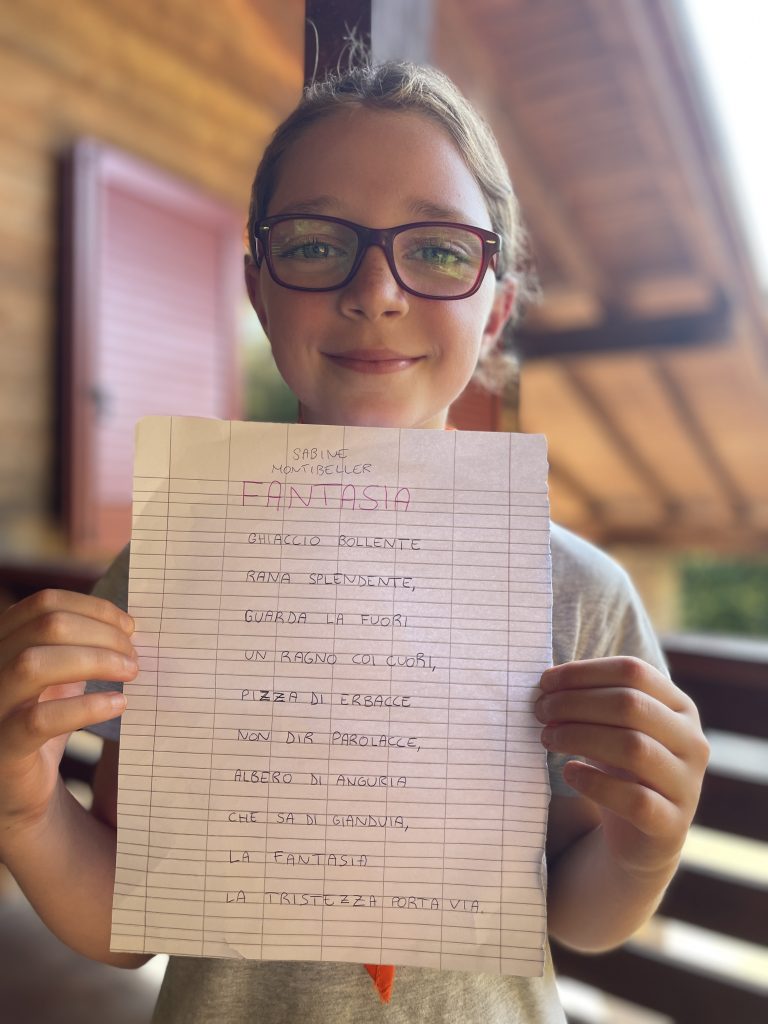 SABINE
MONTIBELLER
FANTASIA
GHIACCIO BOLLENTE
RANA SPLENDENTE,
GUARDA LA FUORI
UN RAGNO COI CUORI,
PIZZA DI ERBACCE
NON DIR PAROLACCE,
ALBERO DI ANGURIA
CHE SA DI GIANDUIA,
LA FANTASIA
LA TRISTEZZA PORTA VIA.